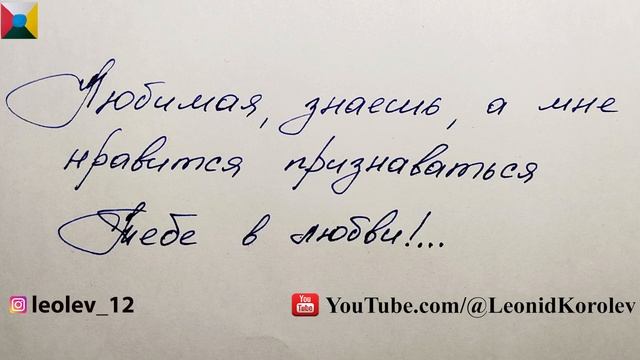 Любимая, знаешь, а мне
нравится признаваться
Тебе в любви!...
leolev_12
You Tube YouTube.com/@LeonidKorolev